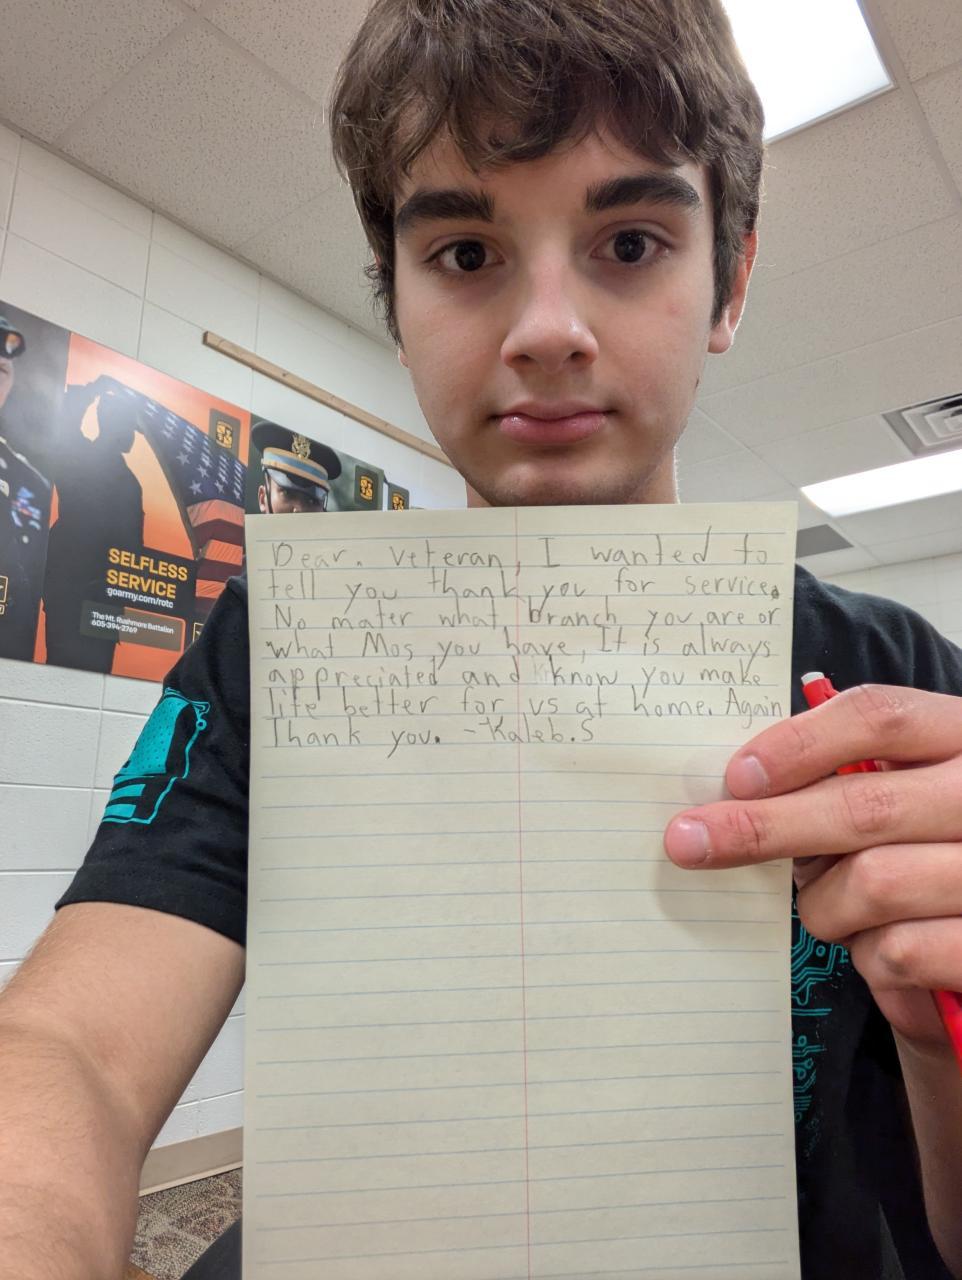 SELFLESS
SERVICE
goarmy.com/rotc
The Mt. Rushmore Battalion
605-394-2769
Dear. veteran, I wanted to
tell you thank you for service.
No mater what branch you are or
what Mos you have, It is always
appreciated and know you make
life better for us at home. Again
Thank you. -Kaleb.S